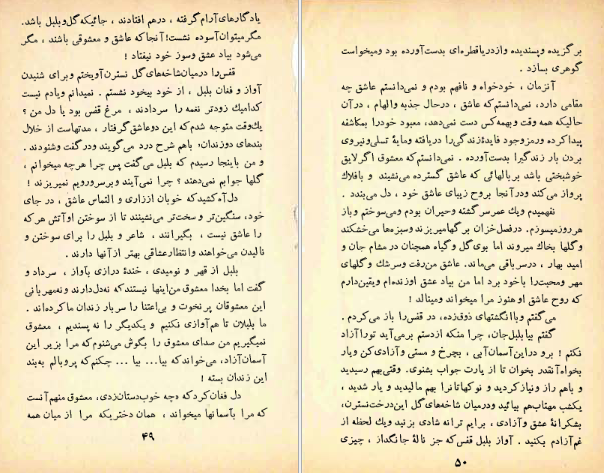 یادگارهای آرام گرفته ، درهم افتادند ، جائیکه گل و بلبل باشد.
مگر میتوان آسوده نشست! آنجا که عاشق و معشوقی باشند ، مگر
می‌شود بیاد عشق وسوز خود نیفتاد !
قفس را درمیان شاخه‌های گل نسترن آویختم و برای شنیدن
آواز و فغان بلبل ، از خود بیخود نشستم . نمیدانم و یادم نیست
کدامیك زودتر نغمه را سردادند ، مرغ قفس بود یا دل من ؟
یك وقت متوجه شدم که این دو عاشق گرفتار ، مدتهاست از خلال
بندهای دوزندان؛ باهم شرح درد می‌گویند و درگفت وشنودند .
و من باینجا رسیدم که بلبل می‌گفت پس چرا هرچه میخوانم ،
گلها جوابم نمی‌دهند ؟ چرا نمی‌آیند و برسر و رویم نمیریزند !
دل آه کشید که خوبان از زاری و التماس عاشق ، در جای
خود، سنگین‌تر و سخت‌تر می‌نشینند تا از سوختن او آتش هرکه
را عاشق نیست ، بگیرانند ، شاعر و بلبل را برای سوختن و
نالیدن می‌خواهند و انتظار عشاقی بهتر از آنها دارند .
بلبل از قهر و نومیدی ، خنده درازی بآواز ، سرداد و
گفت اما بخدا معشوق من اینها نیستند که نه دل دارند و نه مهربانی
این معشوقان پرنخوت و بی‌اعتنا را سربار زندان ما کرده‌اند .
ما بلبلان تا هم‌آوازی نکنیم و یکدیگر را نه پسندیم ، معشوق
نمیگیریم من صدای معشوق را بگوش می‌شنوم که مرا بزیر این
آسمان آزاد، می‌خواند که بیا... بیا ... چکنم که پر و بالم به بند
این زندان بسته !
دل فغان کرد که وه چه خوب داستان زدی، معشوق منهم آنست
که مرا بآسمانها میخواند ، همان دختریکه مرا از میان همه
۴۹
برگزیده و پسندیده و از دریا قطره‌ای بدست‌آورده بود و میخواست
گوهری بسازد .
آنزمان ، خودخواه و نافهم بودم و نمی‌دانستم عاشق چه
مقامی دارد، نمی‌دانستم که عاشق ، درحال جذبه و الهام ، در آن
حالیکه همه وقت و بهمه کس دست نمی‌دهد، معبود خود را بمکاشفه
پیدا کرده و رمز وجود فایدهٔ زندگی را دریافته و مایهٔ تسلی و نیروی
بردن بار زندگی را بدست‌آورده . نمی‌دانستم که معشوق اگر لایق
خوشبختی باشد بر بالهائی که عاشق گسترده می‌نشیند و بافلاك
پرواز می‌کند و در آنجا بروح زیبای عاشق خود ، دل می‌بندد .
نفهمیدم و یك عمر سرگشته و حیران بودم و می‌سوختم و باز
هر روز میسوزم. درفصل خزان برگها میریزند و سبزه‌ها می‌خشکند
و گلها بخاك میروند اما بوی گل و گیاه همچنان در مشام جان و
امید بهار ، درسر باقی می‌ماند. عاشق من رفت و سرشك و گلهای
مهر ومحبت را باخود برد اما من بیاد عشق او زنده‌ام و یقین دارم
که روح عاشق او هنوز مرا میخواند و مینالد !
می‌گفتم و با انگشتهای ذوق زده، در قفس را باز می‌کردم .
گفتم بیا بلبل‌جان، چرا منکه ازدستم برمی‌آید تورا آزاد
نکنم ! برو دراین آسمان آبی ، بچرخ و مستی و آزادی کن و یار
بخواه آنقدر بخوان تا از یارت جواب بشنوی. وقتی بهم رسیدید
و باهم راز و نیاز کردید و نوکهاتانرا بهم مالیدید و یار شدید ،
یکشب مهتاب هم بیائید و درمیان شاخه‌های گل این درخت نسترن،
بشکرانهٔ عشق و آزادی ، برایم ترانه شادی بزنید و یك لحظه از
غم آزادم بکنید . آواز بلبل قفسی که جز نالهٔ جانگداز ، چیزی
۵۰